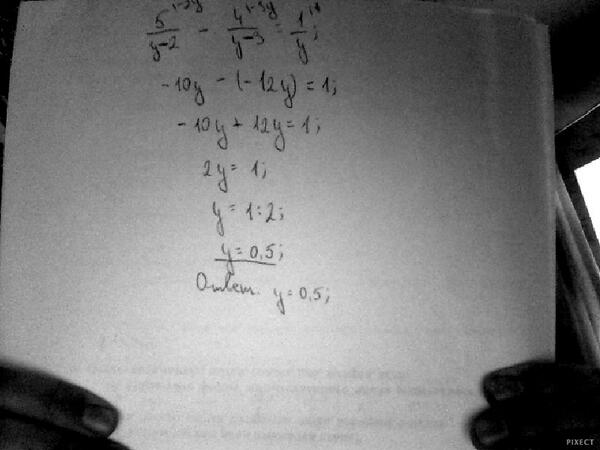 5/(y-2) - 4/(y-3) = 1/y;
-10y - (-12y) = 1;
-10y + 12y = 1;
2y = 1;
y = 1:2;
y = 0,5;
Ответ. y = 0,5;
PIXECT